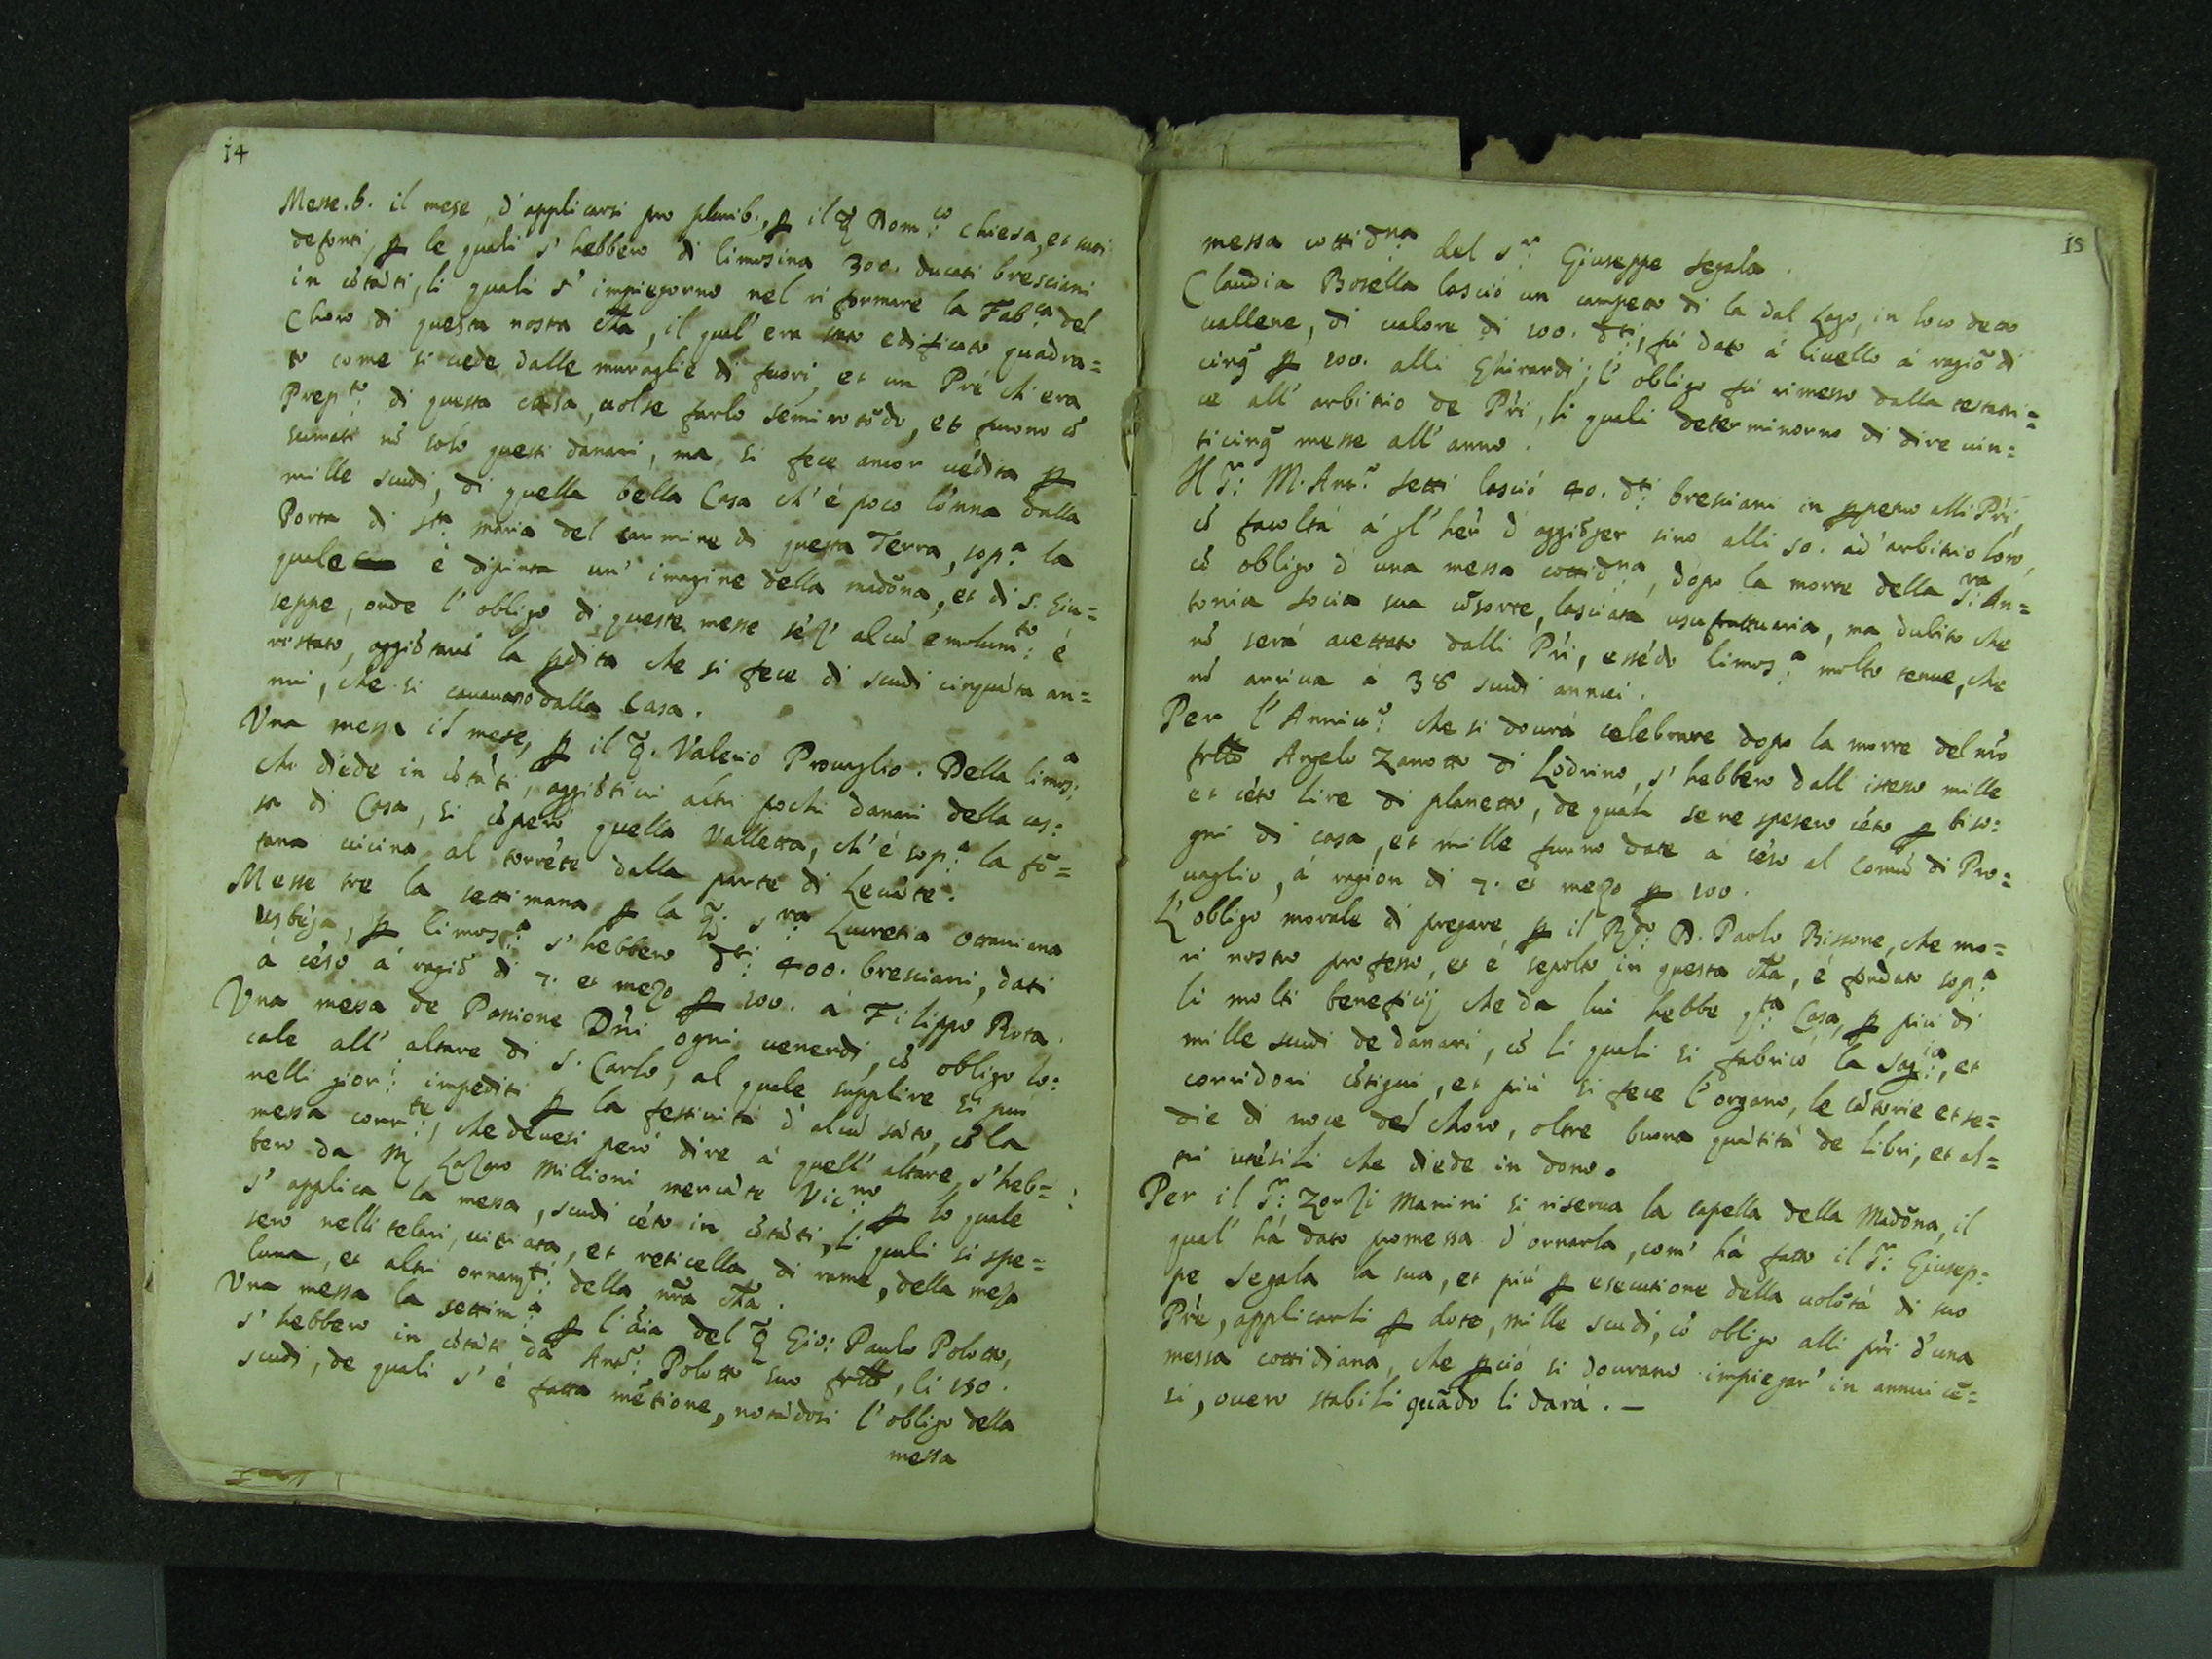 14
Messe. 6. il mese, d'applicarsi pro plurib:, ꝑ il q̃ Dom:co Chiesa, et suoi
defonti, ꝑ le quali s'hebbero di limosina 300. ducati bresciani
in cõtãti, li quali s'impiegorno nel ri formare la Fab:ca del
Choro di questa nostra chã, il qual' era stato edificato quadra=
to come si uede dalle muraglie di fuori, et un Pré ch'era
Prep:to di questa casa, uolse farlo semirotõdo, et furono cõ
sumati nõ solo questi danari, ma si fece ancor uẽdita ꝑ
mille scudi, di quella bella Casa ch'é poco lõtana dalla
Porta di s:ta maria del carmine di questa Terra, sop:a la
quale è dipinta un' imagine della madõna, et di s. Giu=
seppe, onde l'obligo di queste messe sẽz' alcũ emolum:to é
ristato, aggiõtaui la ꝑdita che si fece di scudi cinquãta an=
nui, che si cauauano dalla Casa.
Vna messa il mese, ꝑ il q̃. Valerio Prouaglio. Della limos:a
che diede in cõtãti, aggiõtiui altri pochi danari della cas:
sa di Casa, si cõperò quella Valletta, ch'é sop:a la fõ=
tana uicina al torrẽte dalla parte di Leuãte.
Messe tre la settimana ꝑ la q̃. s:ra Lucretia Octauiana
ꝑ limos:a s'hebbero d:ti 400. bresciani, dati
à cẽso á ragiõ di 7. et mezo ꝑ 100. á Filippo Rota.
Vna messa de Passione Dñi ogni uenerdi, cõ obligo lo:
cale all' altare di s. Carlo, al quale supplire si puó
nelli gior:i impediti ꝑ la festiuitá d'alcũ sãto, cõ la
messa corr:te, che deuesi peró dire á quell' altare, s'heb=
bero da Lazaro Millioni mercãte Vic:no ꝑ lo quale
s'applica la messa, scudi cẽto in cõtãti, li quali si spe=
sero nelli telari, uitriata, et reticella di rame, della meza
luna, et altri ornam:ti della nrã chã.
Vna messa la settim:a ꝑ l'ãia del q̃ Gio: Paulo Polotto,
s'hebbero in cõtãti da Ant:o Polotto suo frtto, li 150.
scudi, de quali s'é fatta mẽtione, notãdosi l'obligo della
messa
15
messa cottid:na del s:r Giuseppe Segala.
Claudia Bosella lasció un campetto di la dal Lago, in loco detto
uallene, di ualore di 100. d:ti, fú dato á liuello á ragiõ di
cinq̃ ꝑ 100. alli Ghirardi; l'obligo fú rimesso dalla testatri=
ce all' arbitrio de Pr̃i, li quali determinorno di dire uin=
ticinq̃ messe all' anno.
Il S:r M. Ant:o Setti lasció 40. d:ti bresciani in ꝑpetuo alli Pr̃i,
cõ facoltá á gl'her̃ d'aggiõger sino alli 50. ad' arbitrio loro,
cõ obligo d'una messa cottid:na, dopo la morte della S:ra An=
tonia Socia sua cõsorte, lasciata usufruttuaria, ma dubito che
nõ será acettato dalli Pr̃i, essẽdo limos:a molto tenue, che
nõ arriua á 38 scudi annui.
Per l'Anniu:o che si dourá celebrare dopo la morte del nr̃o
frtto Angelo Zanotto di Lodrino, s'hebbero dall' istesso mille
et cẽto lire di planetto, de quali se ne spesero cẽto ꝑ biso:
gni di casa, et mille furno date á cẽso al Comũ di Pro=
uaglio, á ragion di 7. et mezo ꝑ 100.
L'obligo morale di pregare ꝑ il R:do D. Paolo Bissone, che mo=
ri nostro professo, et é sepolto in questa chã, é fondato sop:a
li molti beneficij che da lui hebbe q:ta Casa, ꝑ piú di
mille scudi de danari, cõ li quali si fabricò la Sag:ia, et
corridori cõtigui, et piú si fece l'organo, le cãtorie et se=
die di noce del choro, oltre buona quãtitá de libri, et al=
tri utẽsili che diede in dono.
Per il S:r Zorzi Manini si riserua la capella della Madõna, il
qual' há dato promessa d'ornarla, com' há fatto il S:r Giusep:
pe Segala la sua, et piú ꝑ esecutione della uolõtá di suo
Pr̃e, applicarli ꝑ dote, mille scudi, cõ obligo alli pr̃i d'una
messa cottidiana, che ꝑció si dourano impiegar' in annui cẽ=
si, ouero stabili quãdo li dará. —